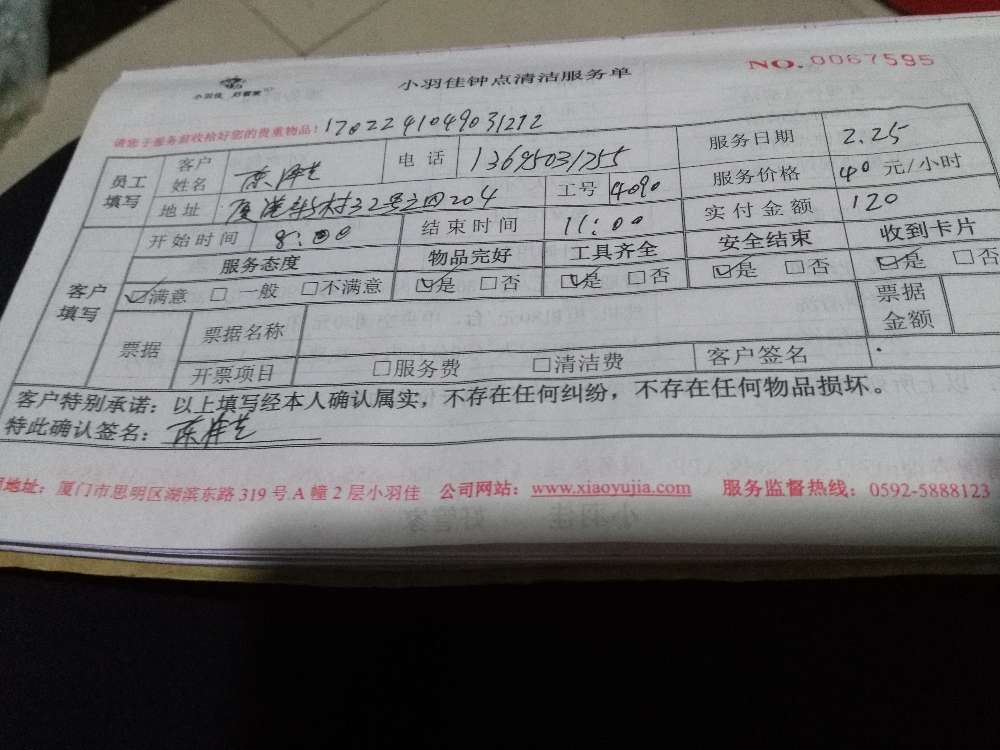 小羽佳 好管家
小羽佳钟点清洁服务单
NO.0067595
请您于服务前收拾好您的贵重物品! 1702241049031212
员工填写 客户姓名 陈泽芝 电话 13695031255 服务日期 2.25
地址 厦港新村32号之四204 工号 4090 服务价格 40 元/小时
客户填写 开始时间 8:00 结束时间 11:00 实付金额 120
服务态度 物品完好 工具齐全 安全结束 收到卡片
☑满意 □一般 □不满意 ☑是 □否 ☑是 □否 ☑是 □否 ☑是 □否
票据 票据名称 票据金额
开票项目 □服务费 □清洁费 客户签名
客户特别承诺:以上填写经本人确认属实,不存在任何纠纷,不存在任何物品损坏。
特此确认签名:陈泽芝
地址:厦门市思明区湖滨东路 319 号 A 幢 2 层小羽佳 公司网站:www.xiaoyujia.com 服务监督热线:0592-5888123